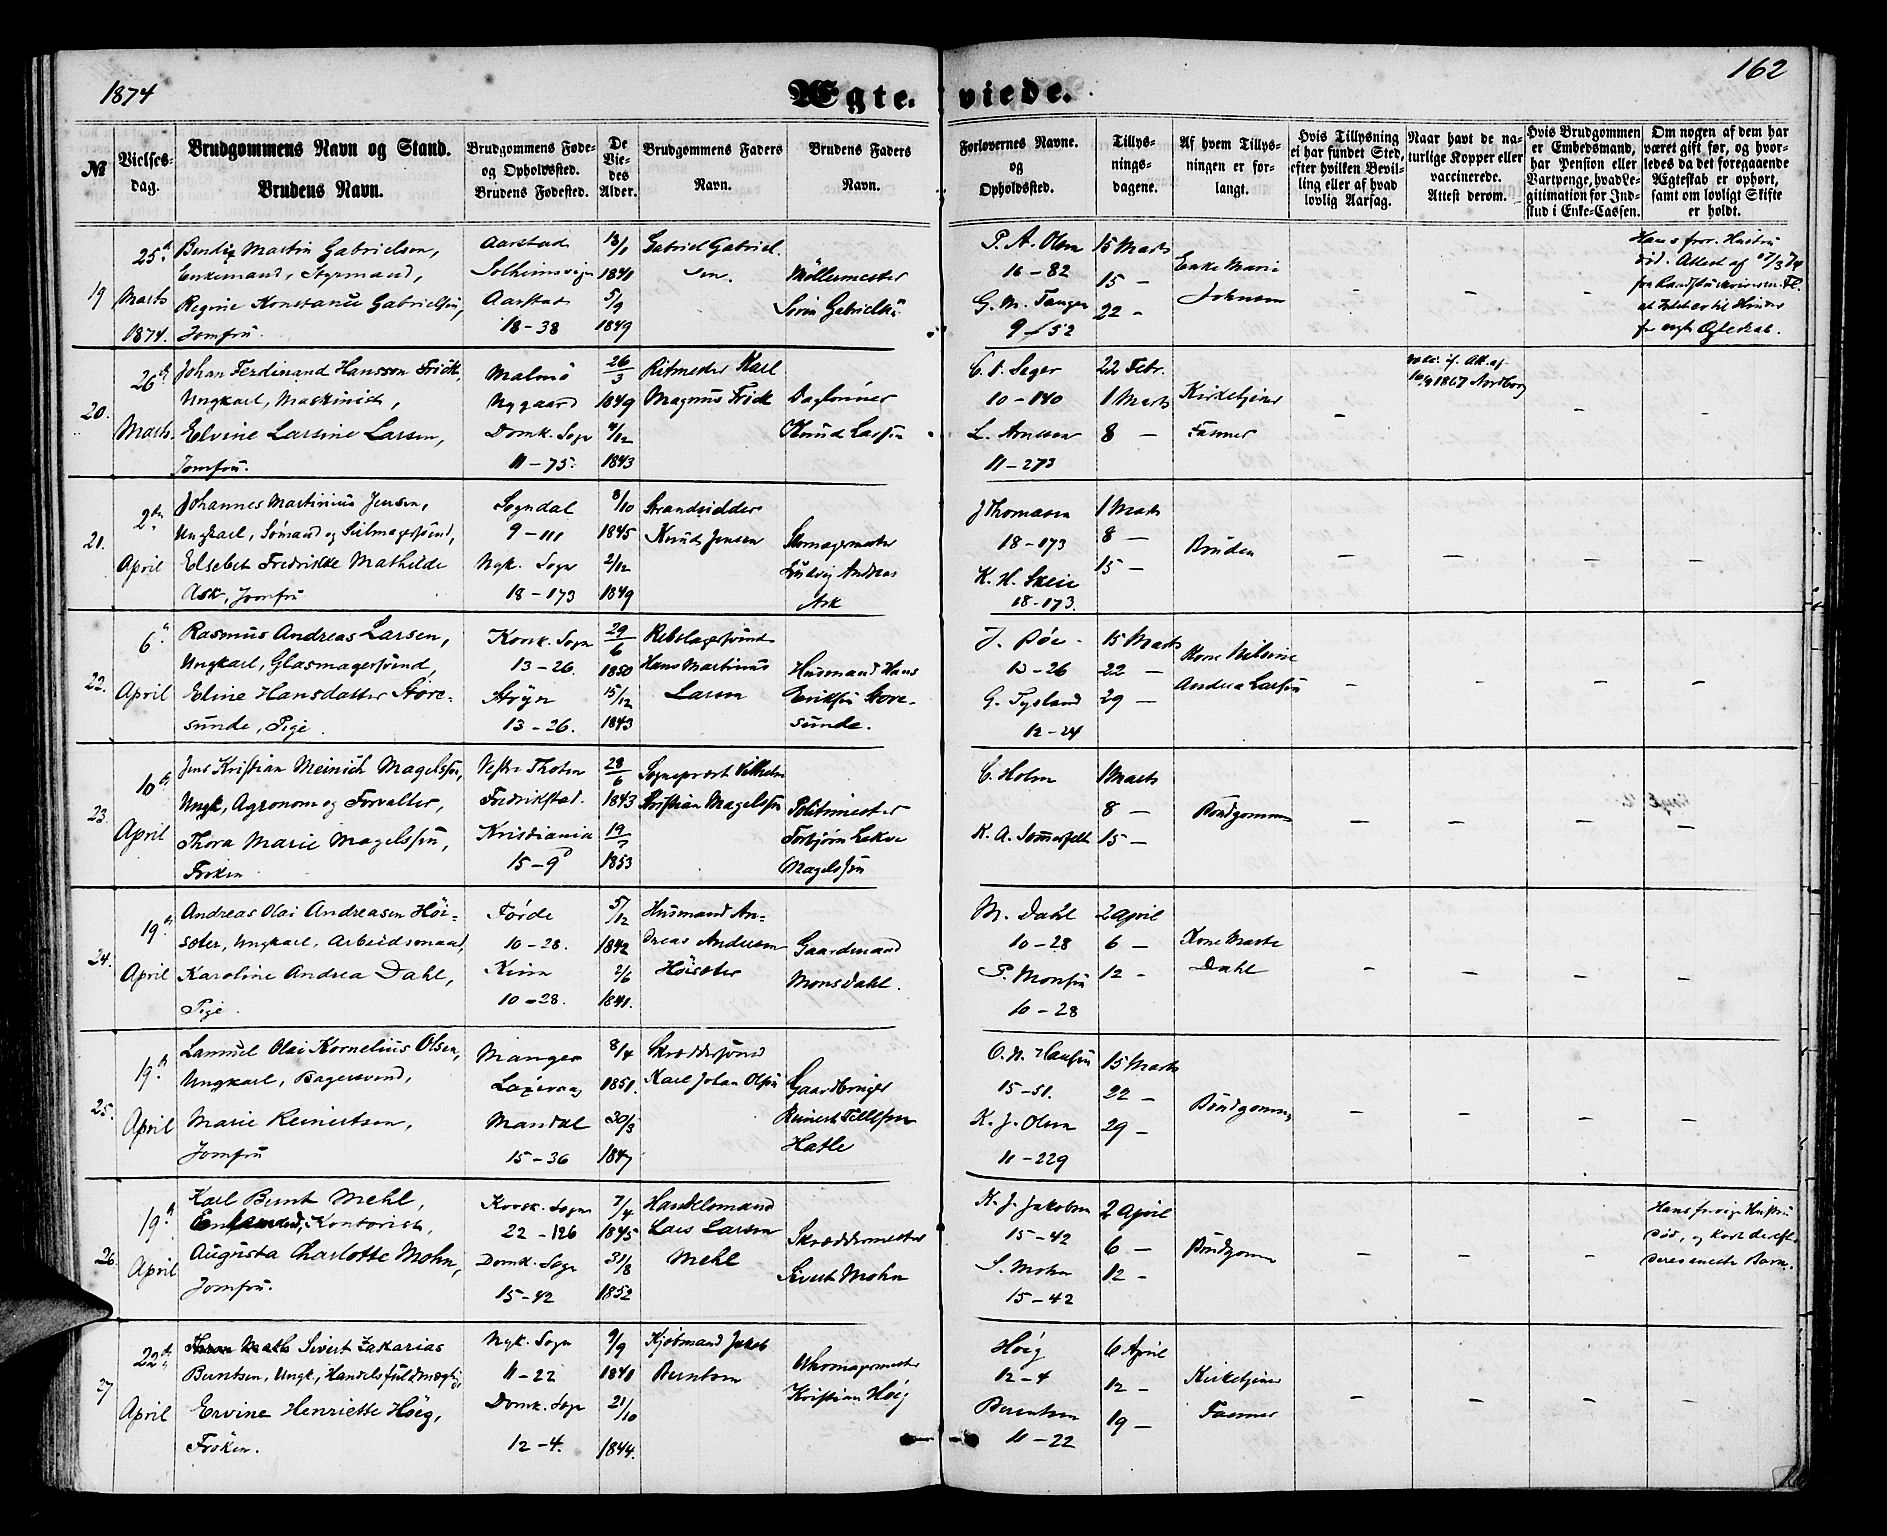 1874
Ægte-viede.
162
№
Vielses-
dag.
Brudgommens Navn og Stand.
Brudens Navn.
Brudgommens Føde-
og Opholdssted.
Brudens Fødested.
De
Vie-
des
Alder.
Brudgommens Faders
Navn.
Brudens Faders
Navn.
Forlovernes Navne.
og
Opholdssted.
Tillys-
nings-
dagene.
Af hvem Tillys-
ningen er for-
langt.
Hvis Tillysning
ei har fundet Sted,
efter hvilken Bevil-
ling eller af hvad
lovlig Aarsag.
Naar havt de na-
turlige Kopper eller
vaccinerede.
Attest derom.
Hvis Brudgommen
er Embedsmand,
har Pension eller
Vartpenge, hvad Le-
gitimation for Ind-
skud i Enke-Cassen.
Om nogen af dem har
været gift før, og hvor-
ledes da det foregaaende
Ægteskab er ophørt,
samt om lovligt Skifte
er holdt.
19
25d
Marts
1874.
Bendix Martin Gabrielsen,
Enkemand, Styrmand,
Regine Konstanse Gabrielsen,
Jomfru.
Aarstad
Solheimsvign
Aarstad
18-38
18/1
1840
5/9
1849
Gabriel Gabriel-
sen.
Møllermester
Sørin Gabrielsen
P. A. Olsen
16-82
G. M. Tanger
9-52
15 Marts
15 -
22 -
Enke Marie
Johnsen
Hans forr. Hustru
død. Attest af 17/3 74
20.
26d
Marts.
Johan Ferdinand Hansson Frick,
Ungkarl, Maskinist,
Elvine Larsine Larsen,
Jomfru.
Malmö
Nygaard
Domk. Sogn
11-75.
26/3
1849
4/12
1843
Ritmester Karl
Magnus Frick
Daglønner
Knud Larsen
C. S. Seger
10-140
L. Arnesen
11-273
22 Febr.
1 Marts
8 -
Kirketjener
Fasmer
1867 Nordborg
21.
2den
April
Johannes Martinius Jensen,
Ungkarl, Sømand og Seilmagersvend,
Elsebet Fredrikke Mathilde
Ask, Jomfru
Sogndal
9-111
Nyk. Sogn
18-173
8/10
1845
2/12
1849
Strandsidder
Knud Jensen
Skomagermester
Ludvig Andreas
Ask
J Thomasen
18-173
K. H. Skeie
18-173.
1 Marts
8 -
15 -
Bruden
22.
6d
April
Rasmus Andreas Larsen,
Ungkarl, Glasmagersvend,
Eline Hansdatter Store-
sunde, Pige.
Korsk. Sogn
13-26.
Stryn
13-26.
29/6
1850
15/12
1843
Rebslagersvend
Hans Martinus
Larsen
Husmand Hans
Eriksen Store-
sunde.
J. Bøe
13-26
G. Tysland
12-24
15 Marts
22 -
29 -
Kone Nilsine
Andrea Larsen
23.
10d
April
Jens Kristian Meinich Magelssen,
Ungk, Agronom og Forvalter,
Thora Marie Magelssen,
Frøken
Vestre Thoten
Fredrikstad.
Kristiania
15-9
28/6
1843
19/7
1853
Sogneprest Vilhelm
Kristian Magelssen
Politimester
Torbjørn Leker
Magelssen
C. Holm
K. A. Sommerfelt
1 Marts
8 -
15 -
Brudgommen
24.
19d
April
Andreas Olai Andreasen Høi-
sæter, Ungkarl, Arbeidsmand,
Karoline Andrea Dahl,
Pige.
Førde
10-28.
Kinn
10-28.
5/12
1842
2/6
1841.
Husmand An-
dreas Andersen
Høisæter
Gaardmand
Mons Dahl.
M. Dahl
10-28
P. Monsen
10-28
2 April
6 -
12 -
Kone Marte
Dahl
25.
19d
April
Samuel Olai Kornelius Olsen,
Ungkarl, Bagersvend,
Marie Reinertsen,
Jomfru
Manger
Laxevaag
Mandal
15-36
8/4
1851.
30/3
1847
Skræddersvend
Karl Johan Olsen
Gaardbruger
Reinert Tellefsen
Hatle
O. N. Hansen
15-51.
K. J. Olsen
11-229
15 Marts
22 -
29 -
Brudgommen
26
19d
April
Karl Bernt Mehl,
Enkemand, Kontorist,
Augusta Charlotte Mohn,
Jomfru.
Korsk. Sogn
22-126
Domk. Sogn
15-42
7/4
1845
31/8
1852
Handelsmand
Lars Larsen
Mehl
Skræddermester
Sivert Mohn
K. J. Jakobsen
15-42
S. Mohn
15-42
2 April
6 -
12 -
Brudgommen
Hans forrige Hustru
død, og kort derefter
deres eneste Barn.
27
22d
April
Sivert Zakarias
Berntsen, Ungk., Handelsfuldmægtig,
Ervine Henriette Høeg,
Frøken.
Nyk. Sogn
11-22
Domk. Sogn
12-4.
9/9
1841
21/10
1844.
Kjøbmand Jakob
Berntsen
Uhrmagermester
Kristian Høeg
Høeg
12-4
Berentsen
11-22
6 April
12 -
19 -
Kirketjener
Fasmer